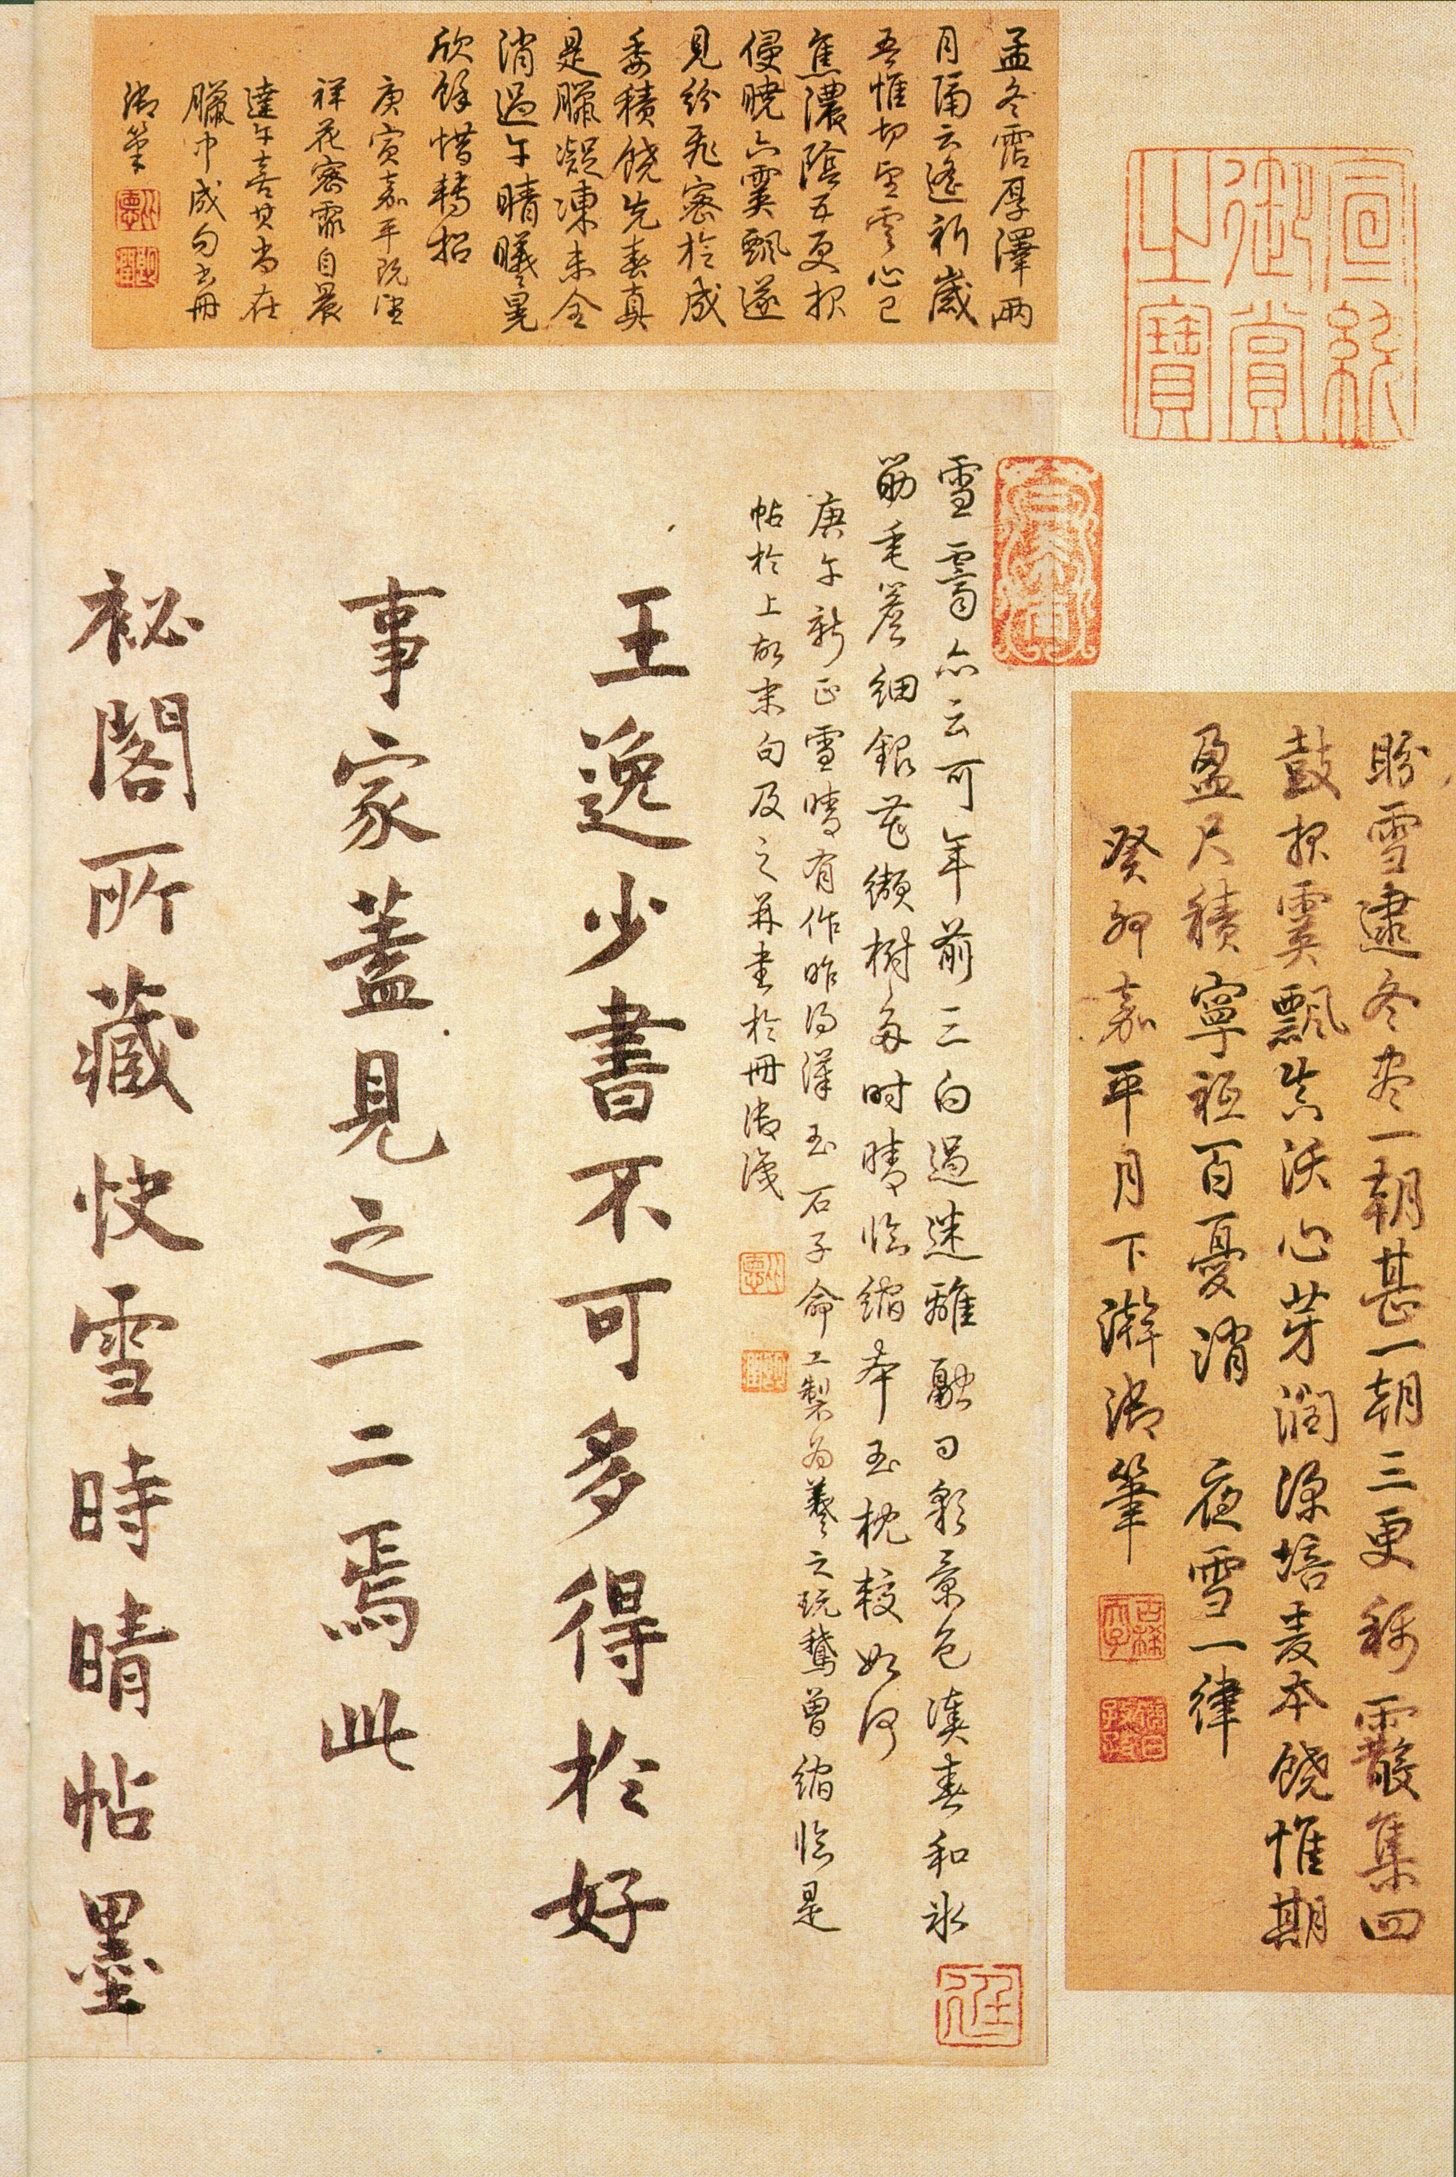 孟冬霑厚澤兩
月隔云遙祈歲
吾惟切望雲心已
焦濃陰五更報
侵曉六霙飄遂
見紛飛密於成
委積饒先春真
是臘凝凍未全
消過午晴曦晃
欣餘惜轉招
庚寅嘉平既望
祥花密霏自晨
達午喜其尚在
臘中成句書冊
御筆
宣統
御賞
之寶
盼雪逮冬盡一朝甚一朝三更稀霰集四
鼓報霙飄崇沃心芽潤深培麦本饒惟期
盈尺積寧祗百憂消 夜雪一律
癸卯嘉平月下澣御筆
雪霽亦云可年前三白過迷離融日影景色湊春和氷
筋垂簷細銀花纈樹多時晴臨縮本玉枕較如何
庚午新正雪晴有作昨得漢玉石子命工製為羲之玩鵝曾縮臨是
帖於上故末句及之並書於冊御識
王逸少書不可多得於好
事家蓋見之一二焉此
祕閣所藏快雪時晴帖墨